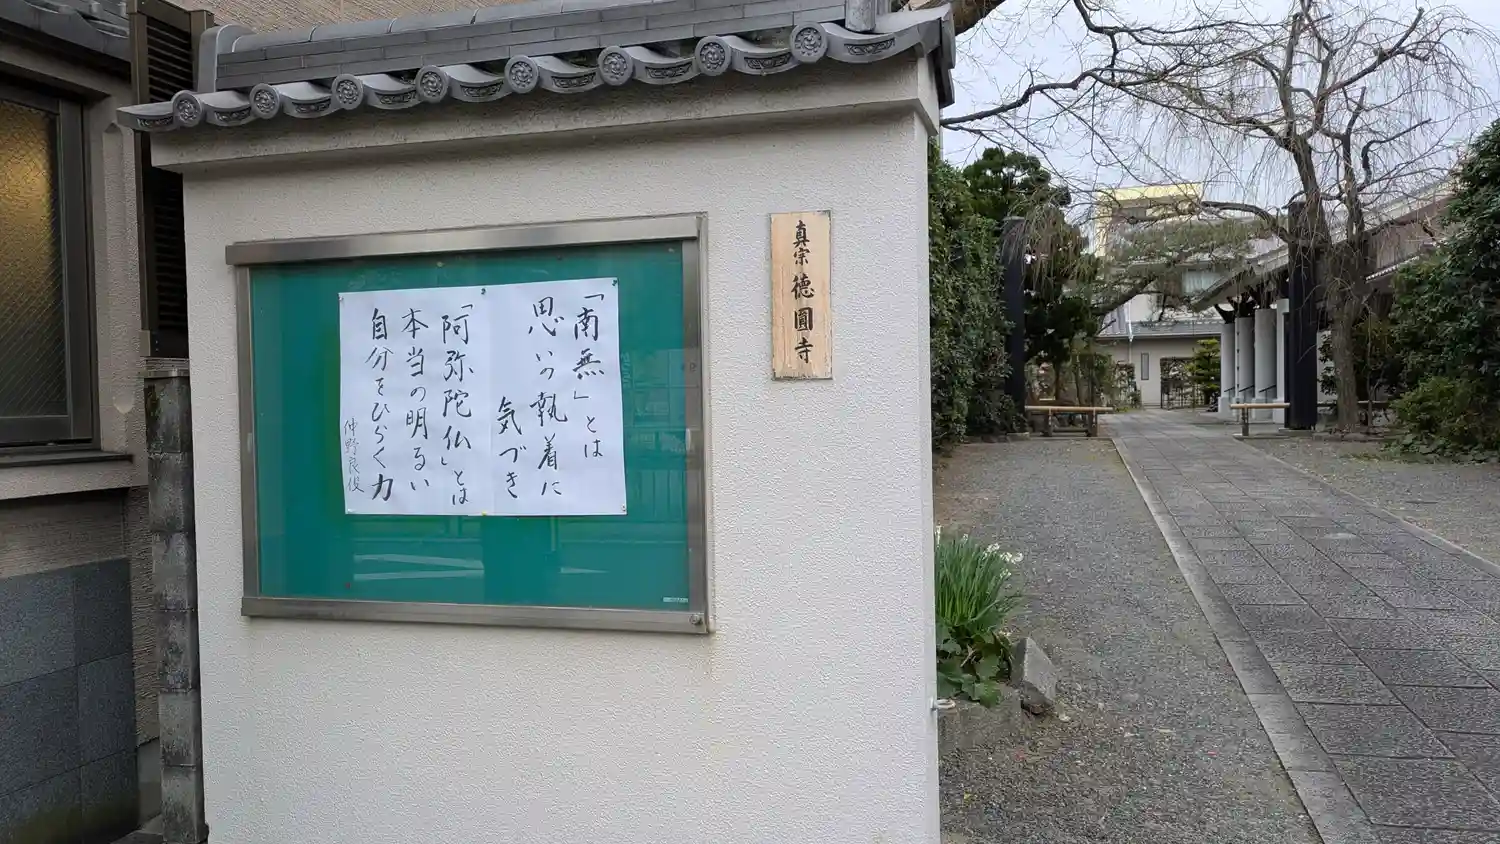 真宗 德圓寺
「南無」とは
思いの執着に
気づき
「阿弥陀仏」とは
本当の明るい
自分をひらく力
仲野良俊